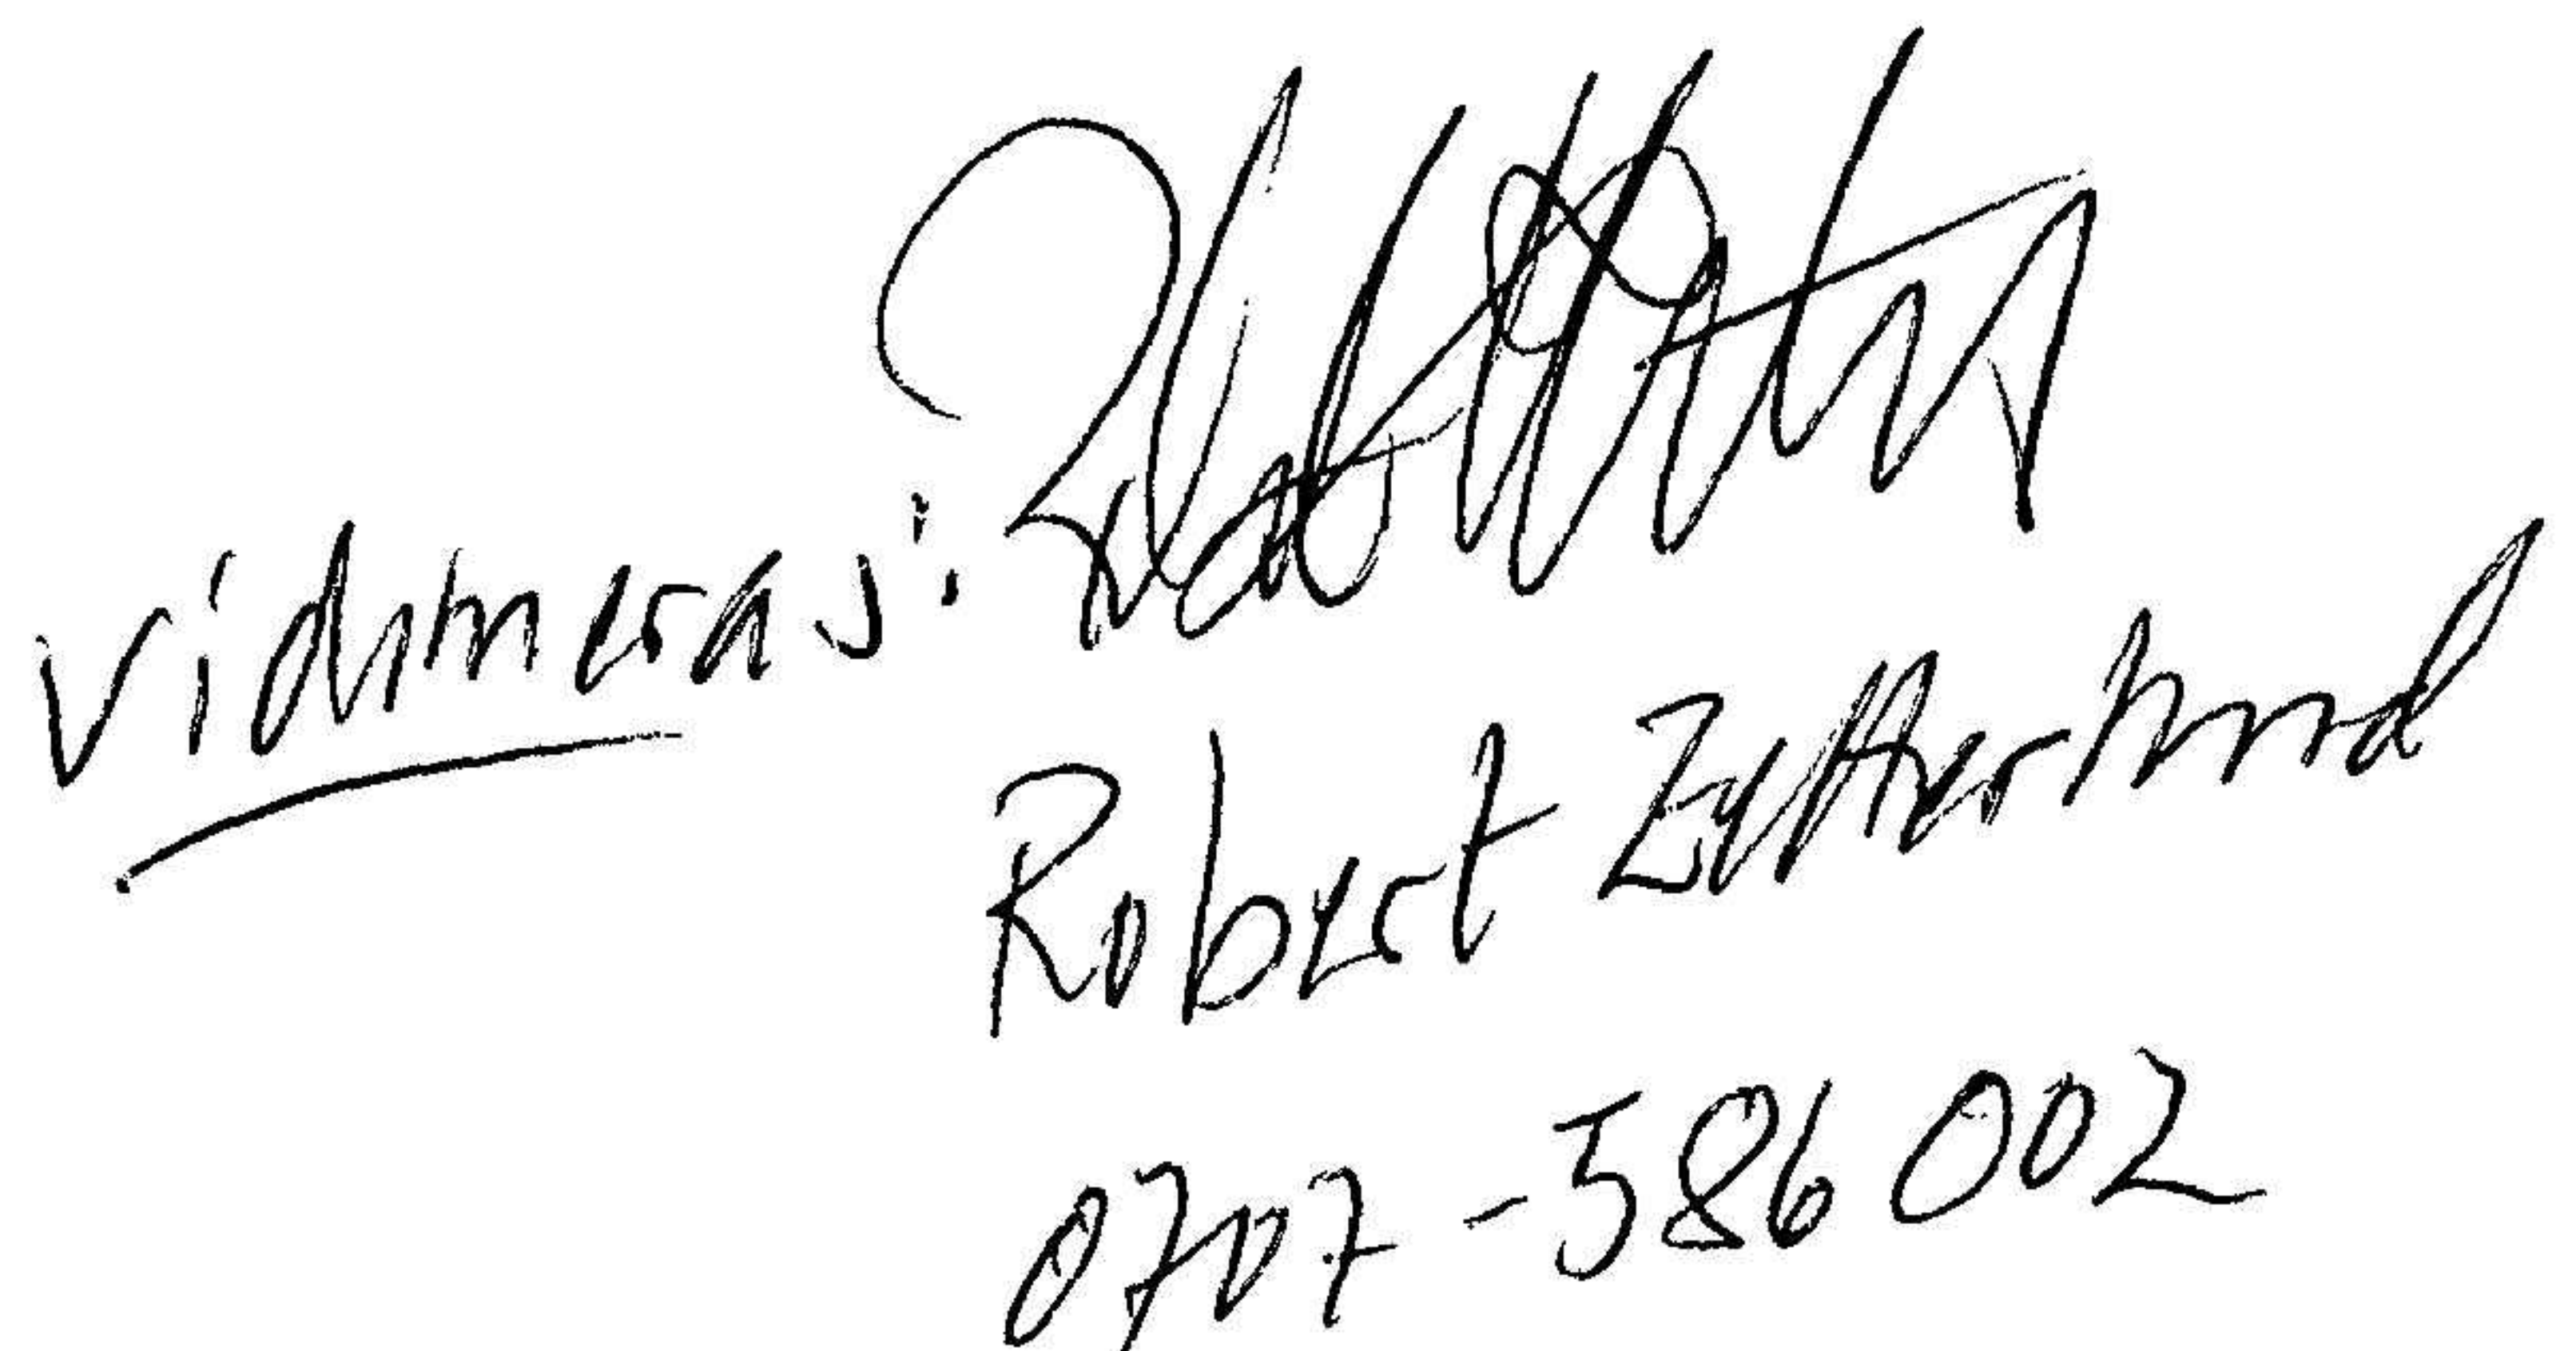 Vidimeras:
Robert Zetterlund
0707-586 002